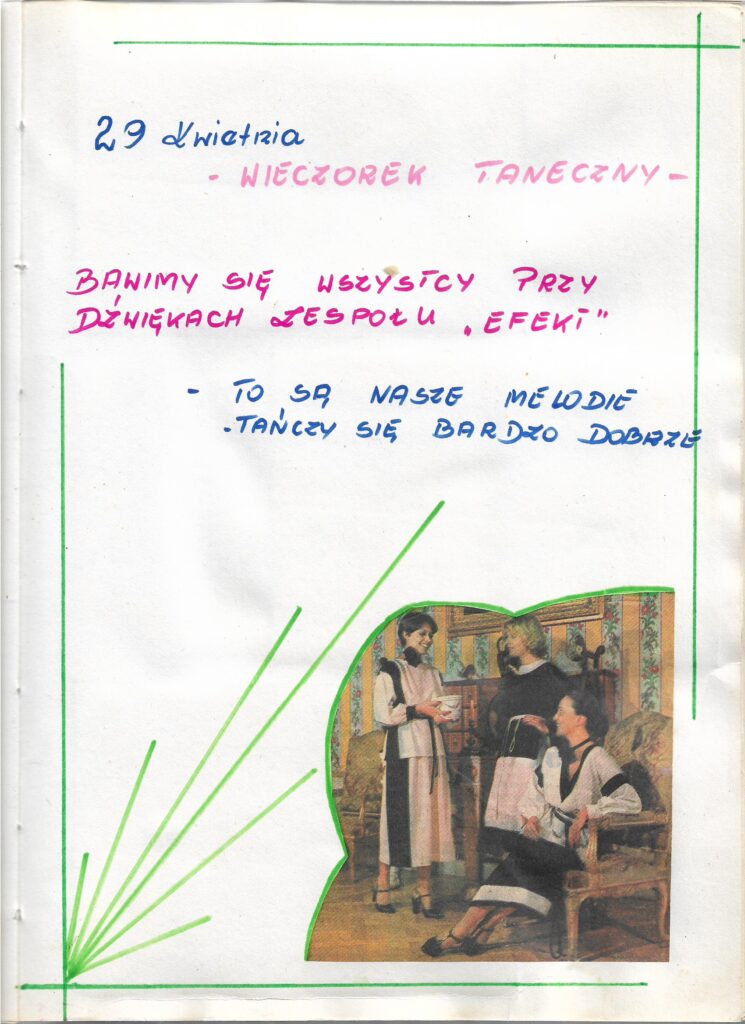 29 kwietnia
- WIECZOREK TANECZNY -
BAWIMY SIĘ WSZYSTCY PRZY
DŹWIĘKACH ZESPOŁU „EFEKT"
- TO SĄ NASZE MELODIE
. TAŃCZY SIĘ BARDZO DOBRZE